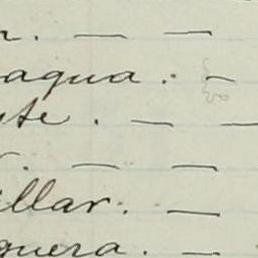 r. — —
agua. —
te. — —
r. — —
illar. —
guera. —